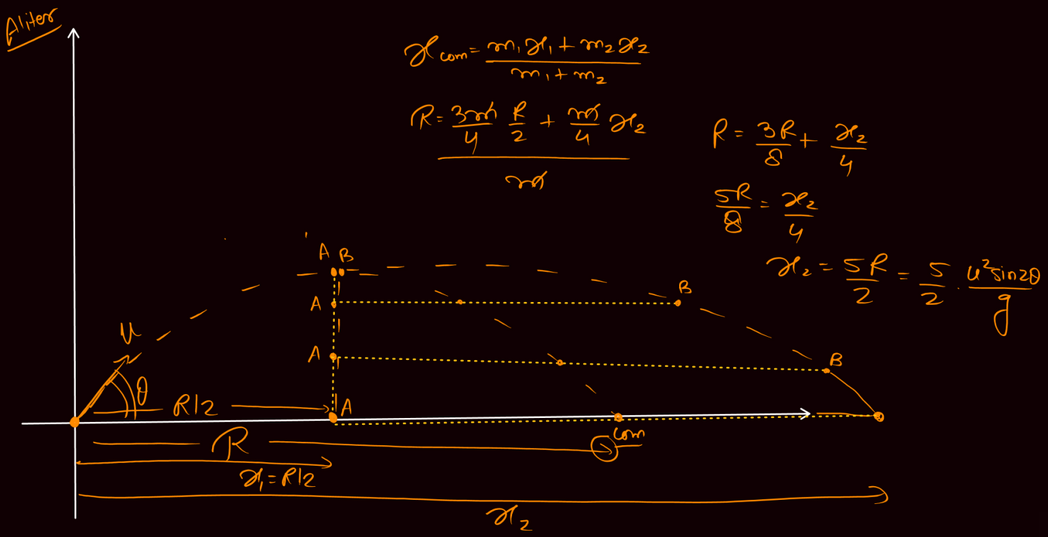 Aliter
x com = m₁x₁ + m₂x₂ / m₁ + m₂
R = 3m/4 R/2 + m/4 x₂ / m
R = 3R/8 + x₂/4
5R/8 = x₂/4
x₂ = 5R/2 = 5/2 . u² sin2θ / g
A B
A B
A B
u
θ
R/2
A
R
com
x₁ = R/2
x₂